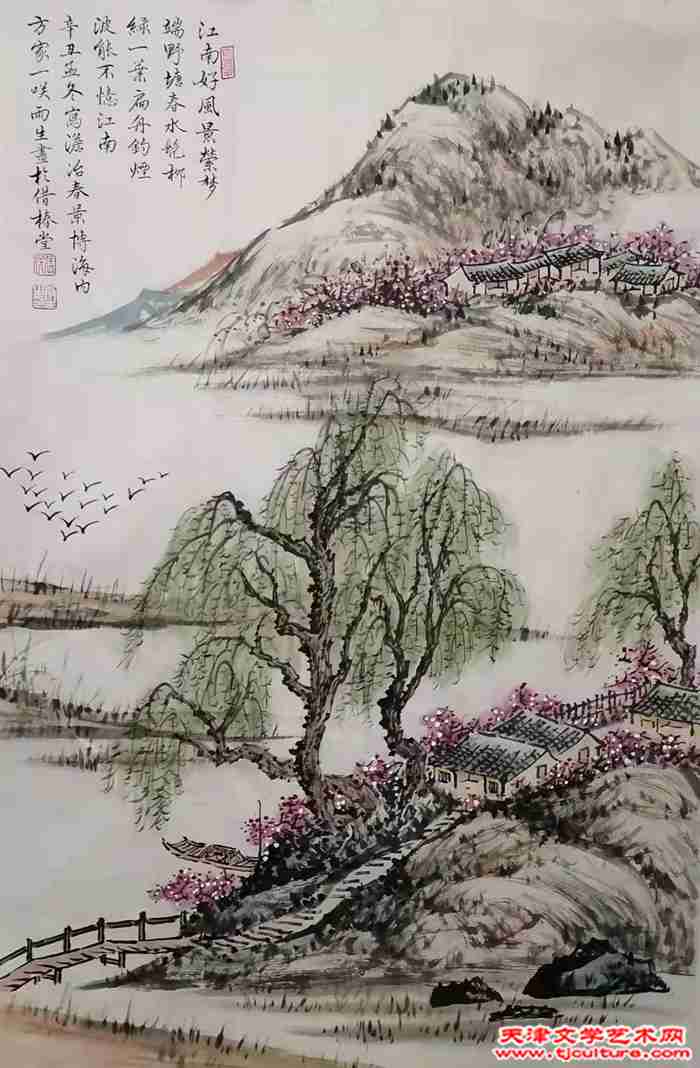 江南好風景縈梦
端野塘春水柳
綠一葉扁舟釣煙
波能不憶江南
辛丑孟冬寫澹冶春景博海内
方家一咲雨生畫於借椿堂
天津文学艺术网
www.tjculture.com